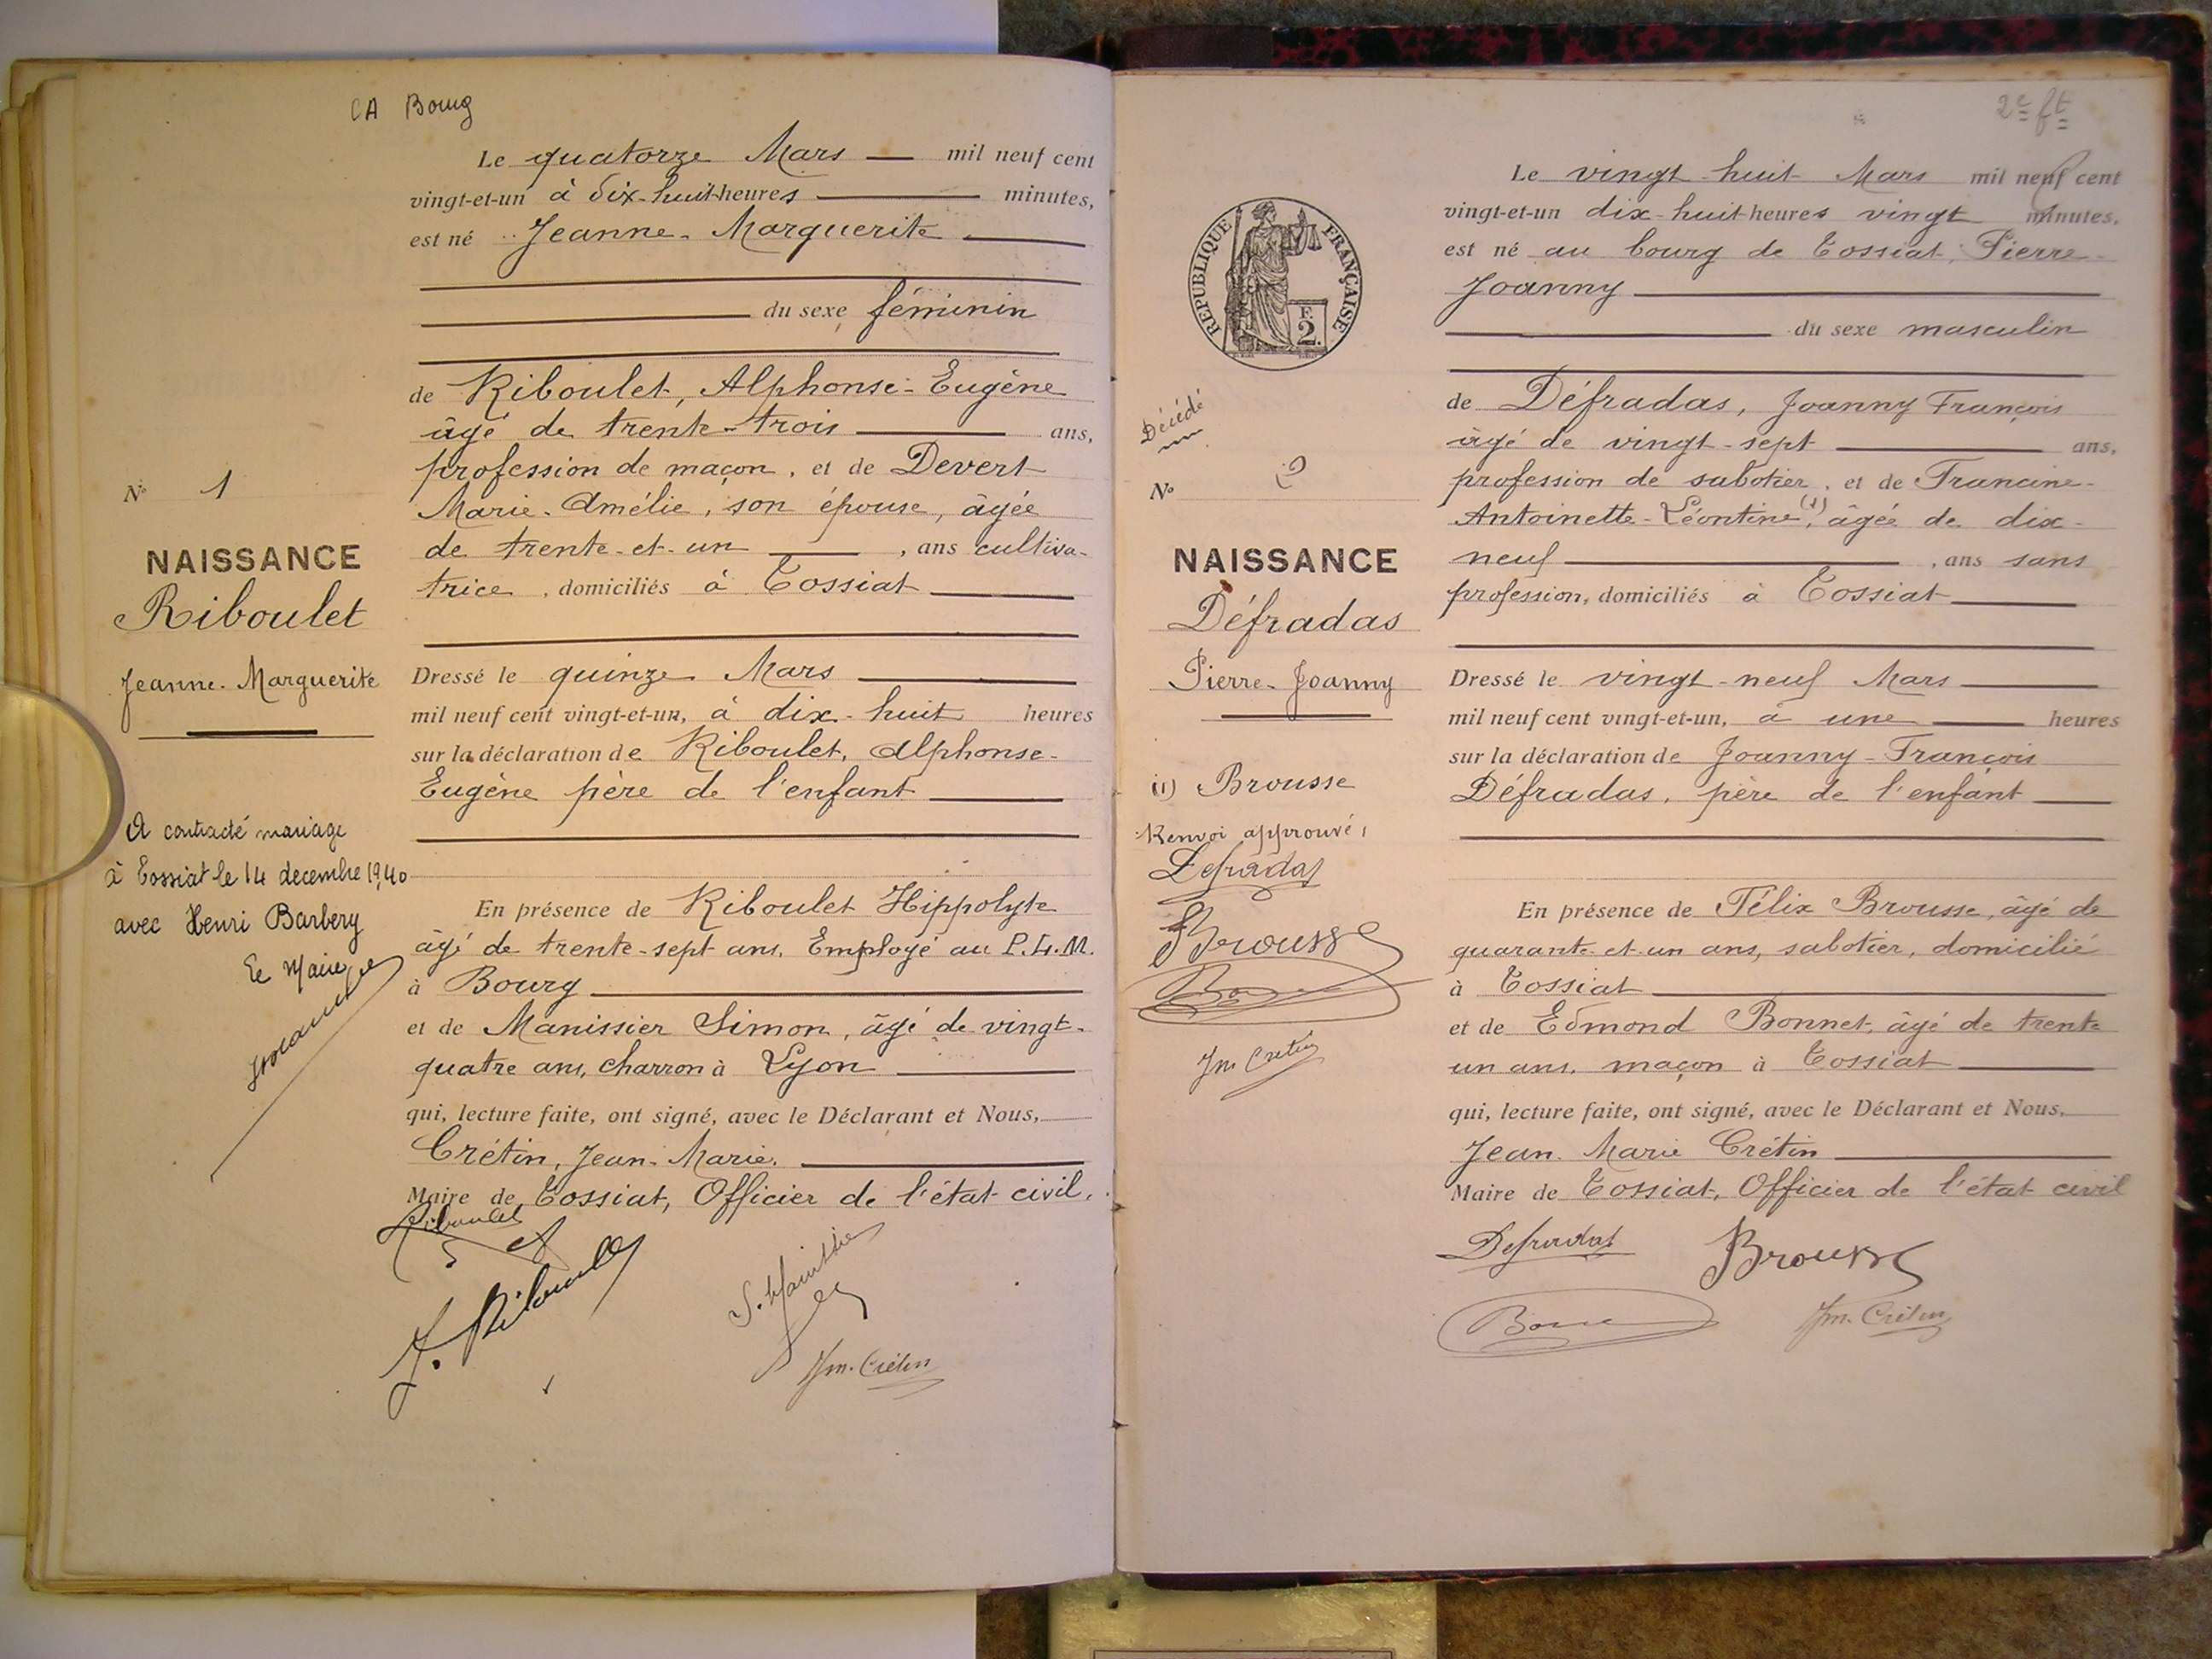 CA Bourg
Le quatorze Mars mil neuf cent
vingt-et-un à dix-huit heures minutes,
est né Jeanne-Marguerite
du sexe féminin
de Riboulet, Alphonse-Eugène
âgé de trente-trois ans,
profession de maçon, et de Devert
Marie-Amélie, son épouse, âgée
de trente-et-un, ans cultiva-
trice, domiciliés à Tossiat
Dressé le quinze Mars
mil neuf cent vingt-et-un, à dix-huit heures
sur la déclaration de Riboulet, Alphonse-
Eugène père de l'enfant
En présence de Riboulet Hippolyte
âgé de trente-sept ans, Employé au P.L.M.
à Bourg
et de Manissier Simon, âgé de vingt-
quatre ans, charron à Lyon
qui, lecture faite, ont signé, avec le Déclarant et Nous,
Crétin, Jean-Marie.
Maire de Tossiat, Officier de l'état civil.
Riboulet
J. Riboulet
Jm. Crétin
No 1
NAISSANCE
Riboulet
Jeanne-Marguerite
A contracté mariage
à Tossiat le 14 decembre 1940
avec Henri Barbery
Le Maire
2e ft
Le vingt-huit Mars mil neuf cent
vingt-et-un dix-huit heures vingt minutes,
est né au bourg de Tossiat, Pierre-
Joanny
du sexe masculin
de Défradas, Joanny François
âgé de vingt-sept ans,
profession de sabotier, et de Francine-
Antoinette-Léontine (1), âgée de dix-
neuf, ans sans
profession, domiciliés à Tossiat
Dressé le vingt-neuf Mars
mil neuf cent vingt-et-un, à une heures
sur la déclaration de Joanny-François
Défradas, père de l'enfant
En présence de Félix Brousse, âgé de
quarante-et-un ans, sabotier, domicilié
à Tossiat
et de Edmond Bonnet, âgé de trente
un ans, maçon à Tossiat
qui, lecture faite, ont signé, avec le Déclarant et Nous,
Jean-Marie Crétin
Maire de Tossiat, Officier de l'état civil
Defradas Brousse
Jm. Crétin
REPUBLIQUE FRANÇAISE
F.
2.
Décédé
No 2
NAISSANCE
Défradas
Pierre-Joanny
(1) Brousse
Renvoi approuvé,
Defradas
Brousse
Jm Crétin